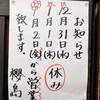 お知らせ
12月31日(水)
1月1日(木)
休み
1月2日(金)から営業
致します。
櫻島